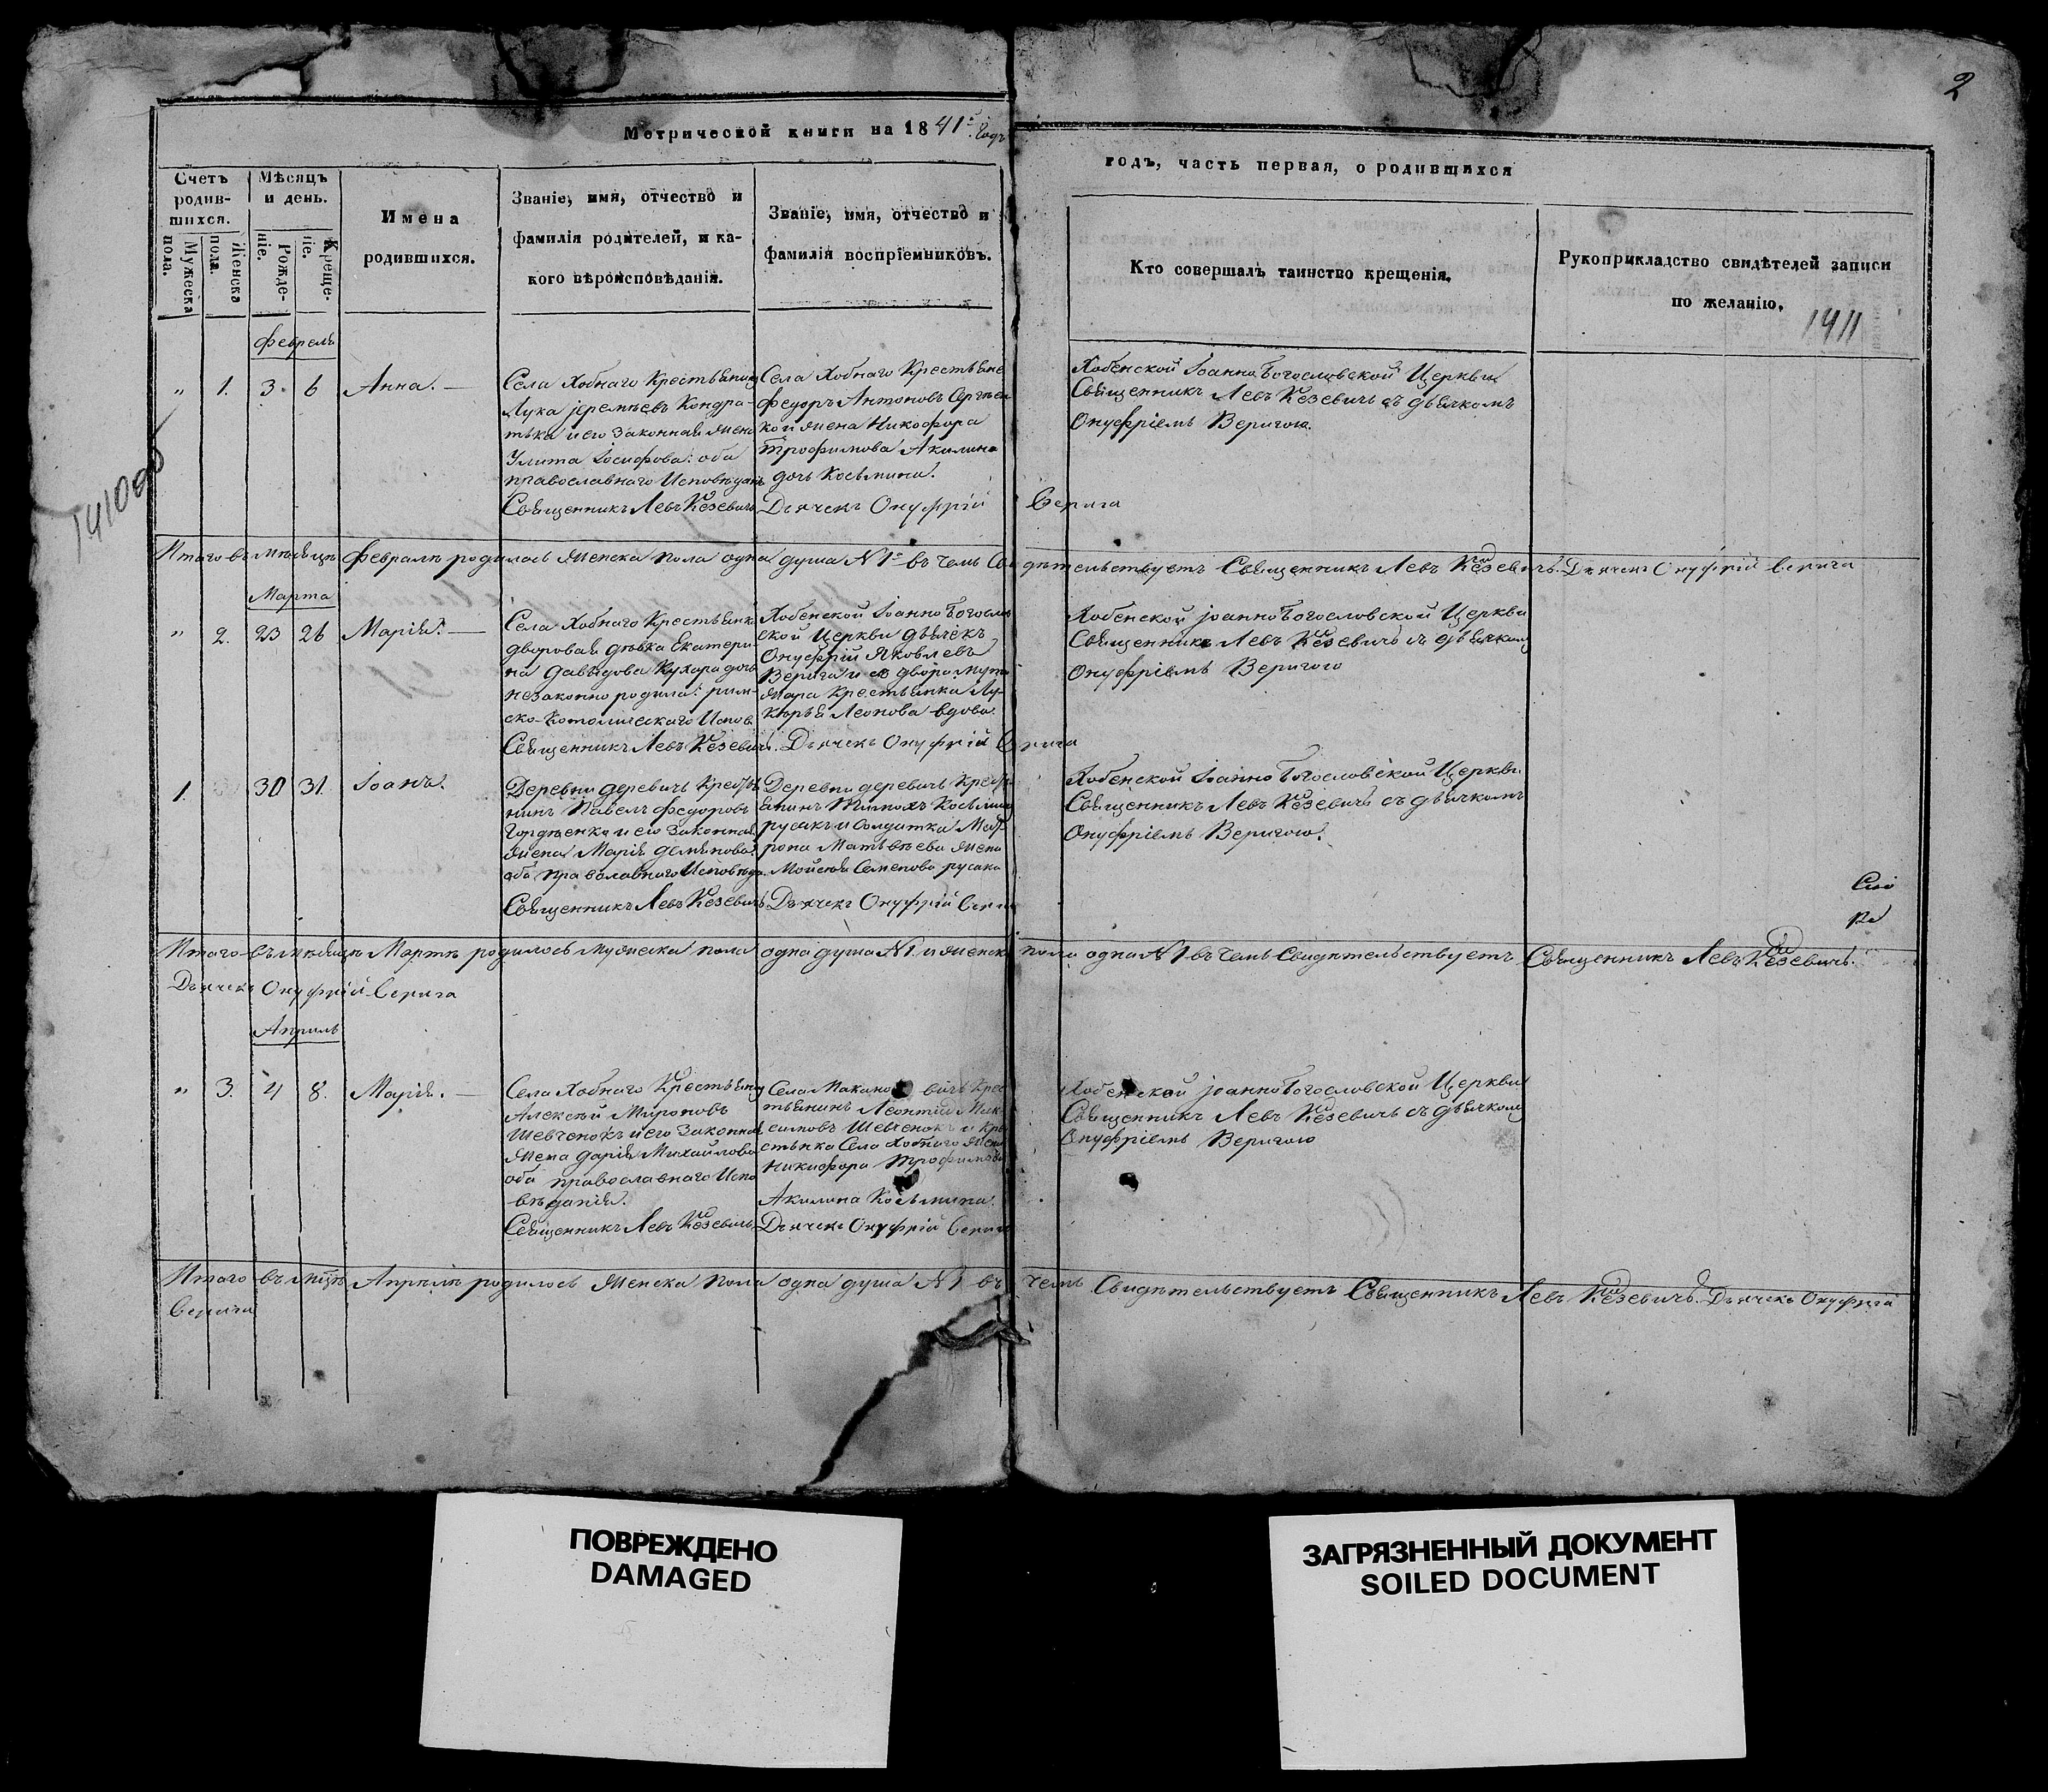 2
Метрической книги на 1841 годъ
годъ, часть первая, о родившихся
Счетъ родив-
шихся.
Мужеска пола.
Женска пола.
Мѣсяцъ и день.
Рожде-
ніе.
Креще-
ніе.
Имена
родившихся.
Званіе, имя, отчество и
фамилія родителей, и ка-
кого вѣроисповѣданія.
Званіе, имя, отчество и
фамилія воспріемниковъ.
Кто совершалъ таинство крещенія.
Рукоприкладство свидѣтелей записи
по желанію.
1411
Февраль
" 1. 3. 6 Анна. —
Села Хобнаго Крестьянинъ
Лука Іеремѣевъ Кондра-
тька и его законная жена
Улита Іосифова: оба
православнаго Исповѣдан
Священникъ Левъ Кезевичъ
Села Хобнаго Крестьяне
Федоръ Антоновъ
ко и жена Никофора
Трофимова Акилина
дочь Косьмина.
Дьячекъ Онуфрій Верига
Хобенской Іоанно Богословской Церкви
Священникъ Левъ Кезевичъ съ дьячкомъ
Онуфріемъ Веригою.
Итого въ мѣсяцѣ Февралѣ родилось женска пола одна душа N 1 въ чемъ свидѣтельствуетъ Священникъ Левъ Кезевичъ. Дьячекъ Онуфрій Верига
Марта
" 2. 23 26 Марія. —
Села Хобнаго Крестьянка
дворовая дѣвка Екатери-
на Давыдова Кухара дочь
незаконно родила: рим-
ско-котолическаго Испов.
Священникъ Левъ Кезевичъ.
Хобенской Іоанно Богослов
ской Церкви дьячекъ
Онуфрій Яковлевъ
Верига и
Крестьянка Лу-
керья Леонова вдова.
Дьячекъ Онуфрій Верига
Хобенской Іоанно Богословской Церкви
Священникъ Левъ Кезевичъ съ дьячкомъ
Онуфріемъ Веригою
1. 30 31. Іоанъ.
Деревни Деревичъ Кресть
нинъ Павелъ Федоровъ
Гордѣенка и его законная
жена Марія Демьянова:
оба православнаго Исповѣда.
Священникъ Левъ Кезевичъ
Деревни Деревичъ Кресть
анинъ Тимохъ Косьминъ
русакъ и Солдатка Мат-
рона Матвѣева жена
Мойсея Семенова русака
Дьячекъ Онуфрій Верига
Хобенской Іоанно Богословской Церкви
Священникъ Левъ Кезевичъ съ дьячкомъ
Онуфріемъ Веригою.
Сію
Ра
Итого въ мѣсяцѣ Мартѣ родилось мужеска пола одна душа N 1. и женска пола одна N 1 въ чемъ Свидѣтельствуетъ Священникъ Левъ Кезевичъ.
Дьячекъ Онуфрій Верига
Априль
" 3. 4 8. Марія. —
Села Хобнаго Крестьянинъ
Алексѣй Мироновъ
Шевченокъ и его законная
жена Дарія Михайлова
оба православнаго Испо
вѣданія.
Священникъ Левъ Кезевичъ.
Села вичъ Крес
тьянинъ Леонтій Мак-
симовъ Шевченокъ и Кре
стьянка Села Хобнаго жена
Никифора Трофимова
Акилина Косьмина.
Дьячекъ Онуфрій Верига
Хобенской Іоанно Богословской Церкви
Священникъ Левъ Кезевичъ съ дьячкомъ
Онуфріемъ Веригою
Итого въ мцѣ Апрелѣ родилось женска пола одна душа N 1 въ чемъ Свидѣтельствуетъ Священникъ Левъ Кезевичъ. Дьячекъ Онуфрій
Верига
ПОВРЕЖДЕНО
DAMAGED
ЗАГРЯЗНЕННЫЙ ДОКУМЕНТ
SOILED DOCUMENT